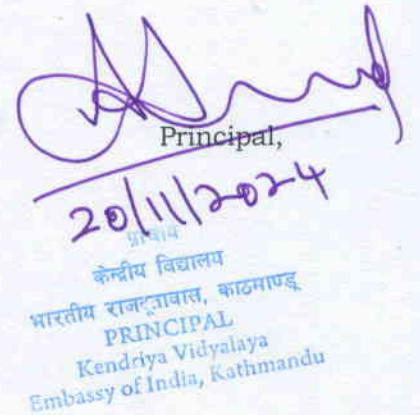 Principal,
20/11/2024
प्राचार्य
केन्द्रीय विद्यालय
भारतीय राजदूतावास, काठमाण्डू
PRINCIPAL
Kendriya Vidyalaya
Embassy of India, Kathmandu